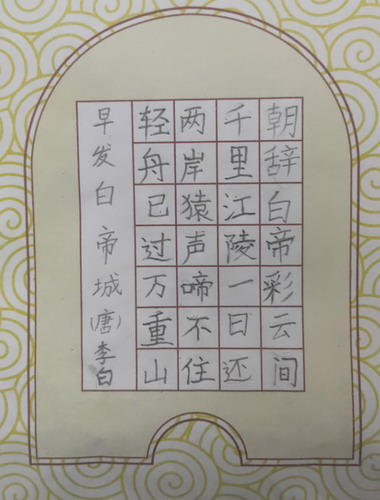 朝辞白帝彩云间
千里江陵一日还
两岸猿声啼不住
轻舟已过万重山
早发白帝城(唐)李白